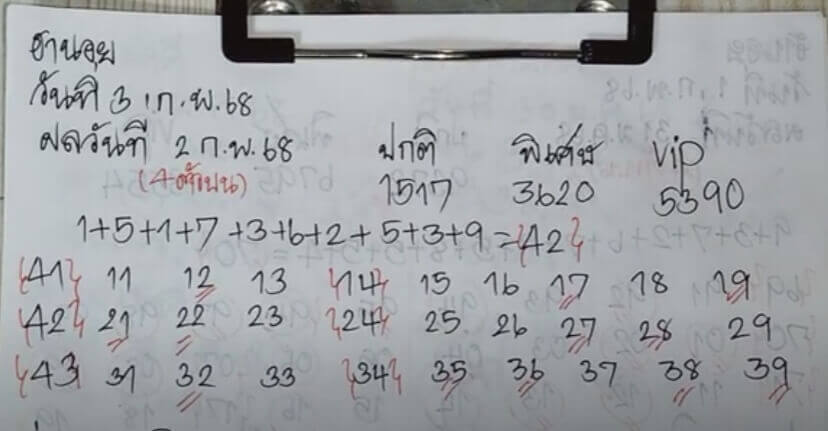 ฮานอย
วันที่ 3 ก.พ.68
ผลวันที่ 2 ก.พ.68 ปกติ พิเศษ vip
(4 ตัวบน) 1517 3620 5390
1+5+1+7+3+6+2+5+3+9=42
41 11 12 13 14 15 16 17 18 19
42 21 22 23 24 25 26 27 28 29
43 31 32 33 34 35 36 37 38 39